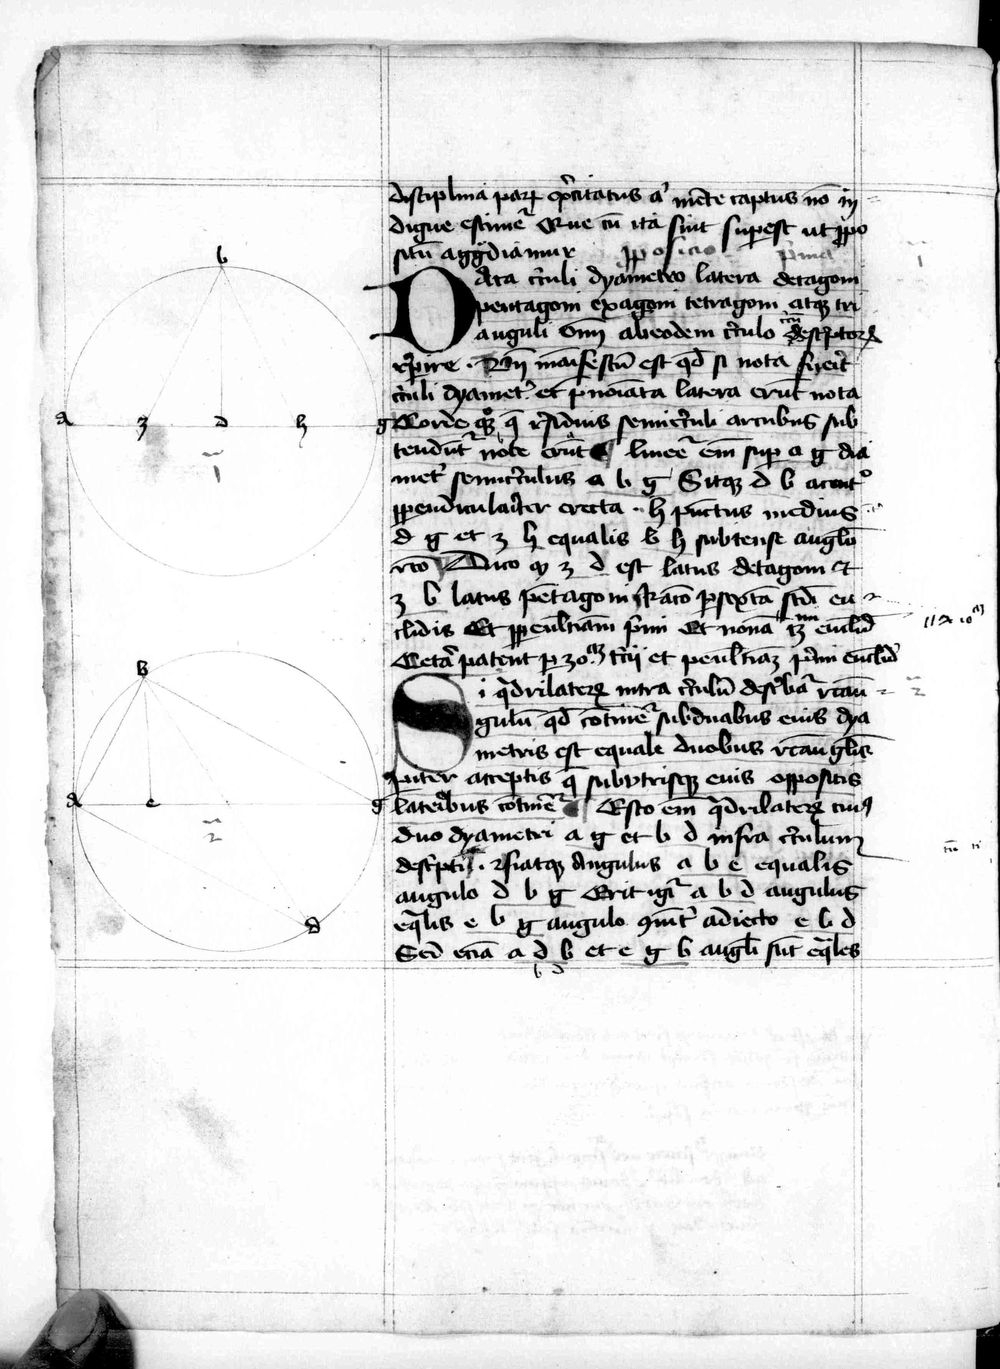 disciplina par exercitatus a mente captus non in
digne estimer Que cum ita sint superest ut propo
situm aggrediamur propositio prima
Data circuli dyametro latera decagoni
pentagoni exagoni tetragoni atque tri
anguli omnium ab eodem circulo circumscriptorum
reperire. Unde manifestum est quod si nota fuerit
circuli dyameter et prenominata latera erunt nota
Corde quoque que residuis semicirculi arcubus sub
tenduntur note erunt linetur enim super a g dia
metrum semicirculus a b g Sitque d b a centro
perpendiculariter erecta. h punctus medius
d g et z h equalis b h subtense angulo
recto Dico quod z d est latus decagoni et
z b latus pentagoni racio per sextam secundi eu
clidis Et penultimam primi Et nonam 13 euclidis
Cetera patent per 30am tercii et penultimam primi euclidis
Si quadrilaterum intra circulum describatur rectan
gulum quod continetur sub duabus eius dya
metris est equale duobus rectangulis
pariter acceptis que sub utrisque eius oppositis
lateribus continetur Esto enim quadrilaterum cuius
duo dyametri a g et b d infra circulum
descripti. fiatque angulus a b e equalis
angulo d b g Erit igitur a b d angulus
equalis e b g angulo communiter adiecto e b d
Sed etiam a d b et e g b anguli sunt equales
b d
b
a z d h g
1
B
a e g
2
d
1
2